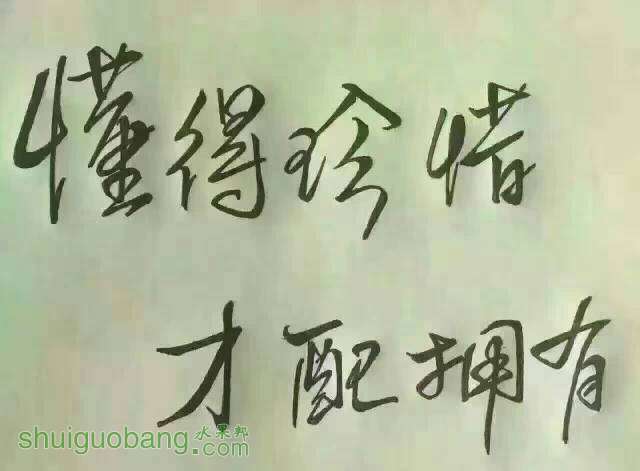 懂得珍惜
才配拥有
shuiguobang.com
水果邦